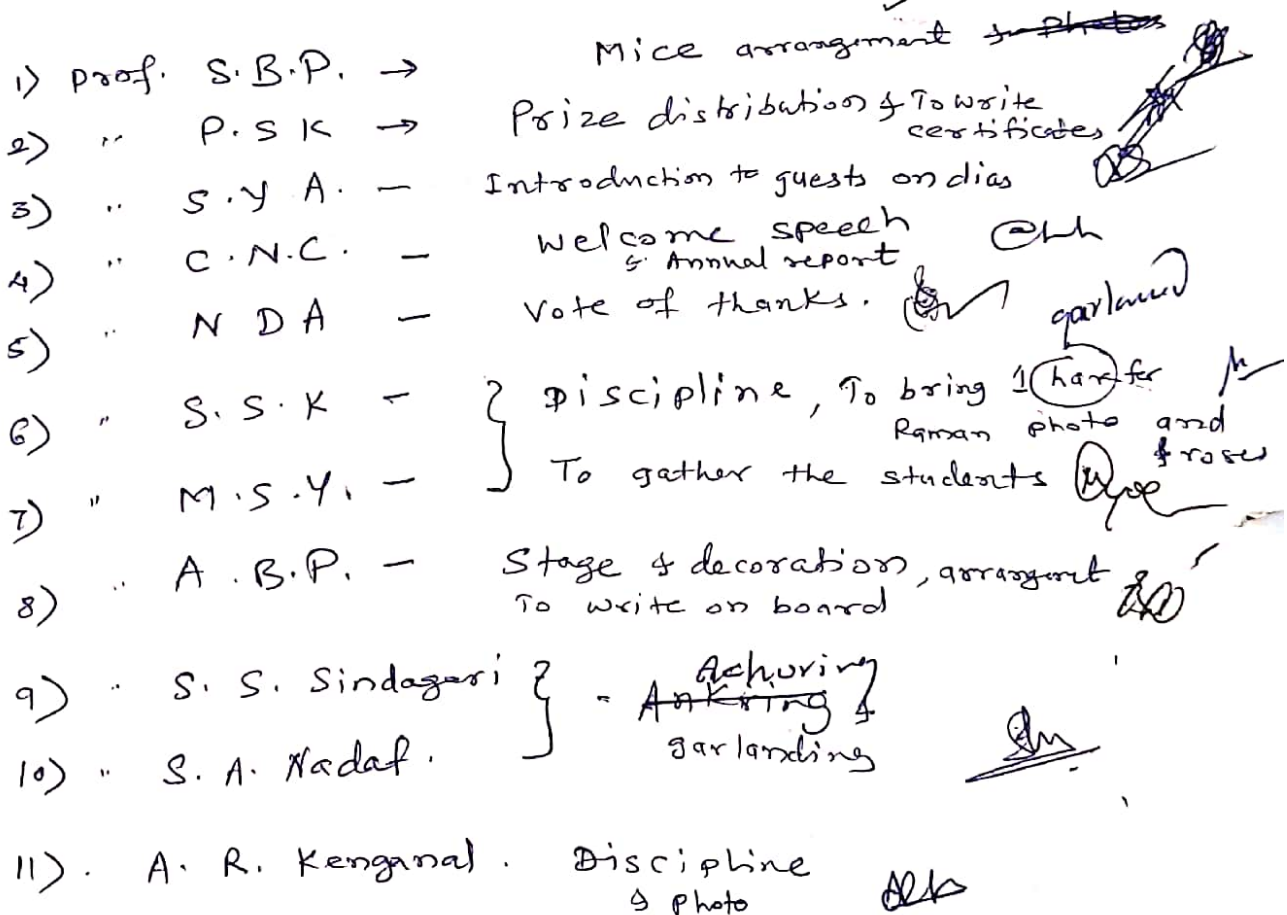 1) Prof. S.B.P. → Mice arrangement
2) " P.S K → Prize distribution & To write
certificates
3) " S.Y A. — Introduction to guests on dias
4) " C.N.C. — Welcome speech
& Annual report
5) " N D A — Vote of thanks.
garland
6) " S.S.K - } Discipline, To bring 1 har for
Raman photo and
& roses
7) " M.S.Y. — To gather the students
8) " A.B.P. — Stage & decoration, arrangent
To write on board
9) " S. S. Sindagari } - Achuring
Ankring &
10) " S. A. Nadaf. garlanding
11). A. R. Kenganal. Discipline
& Photo